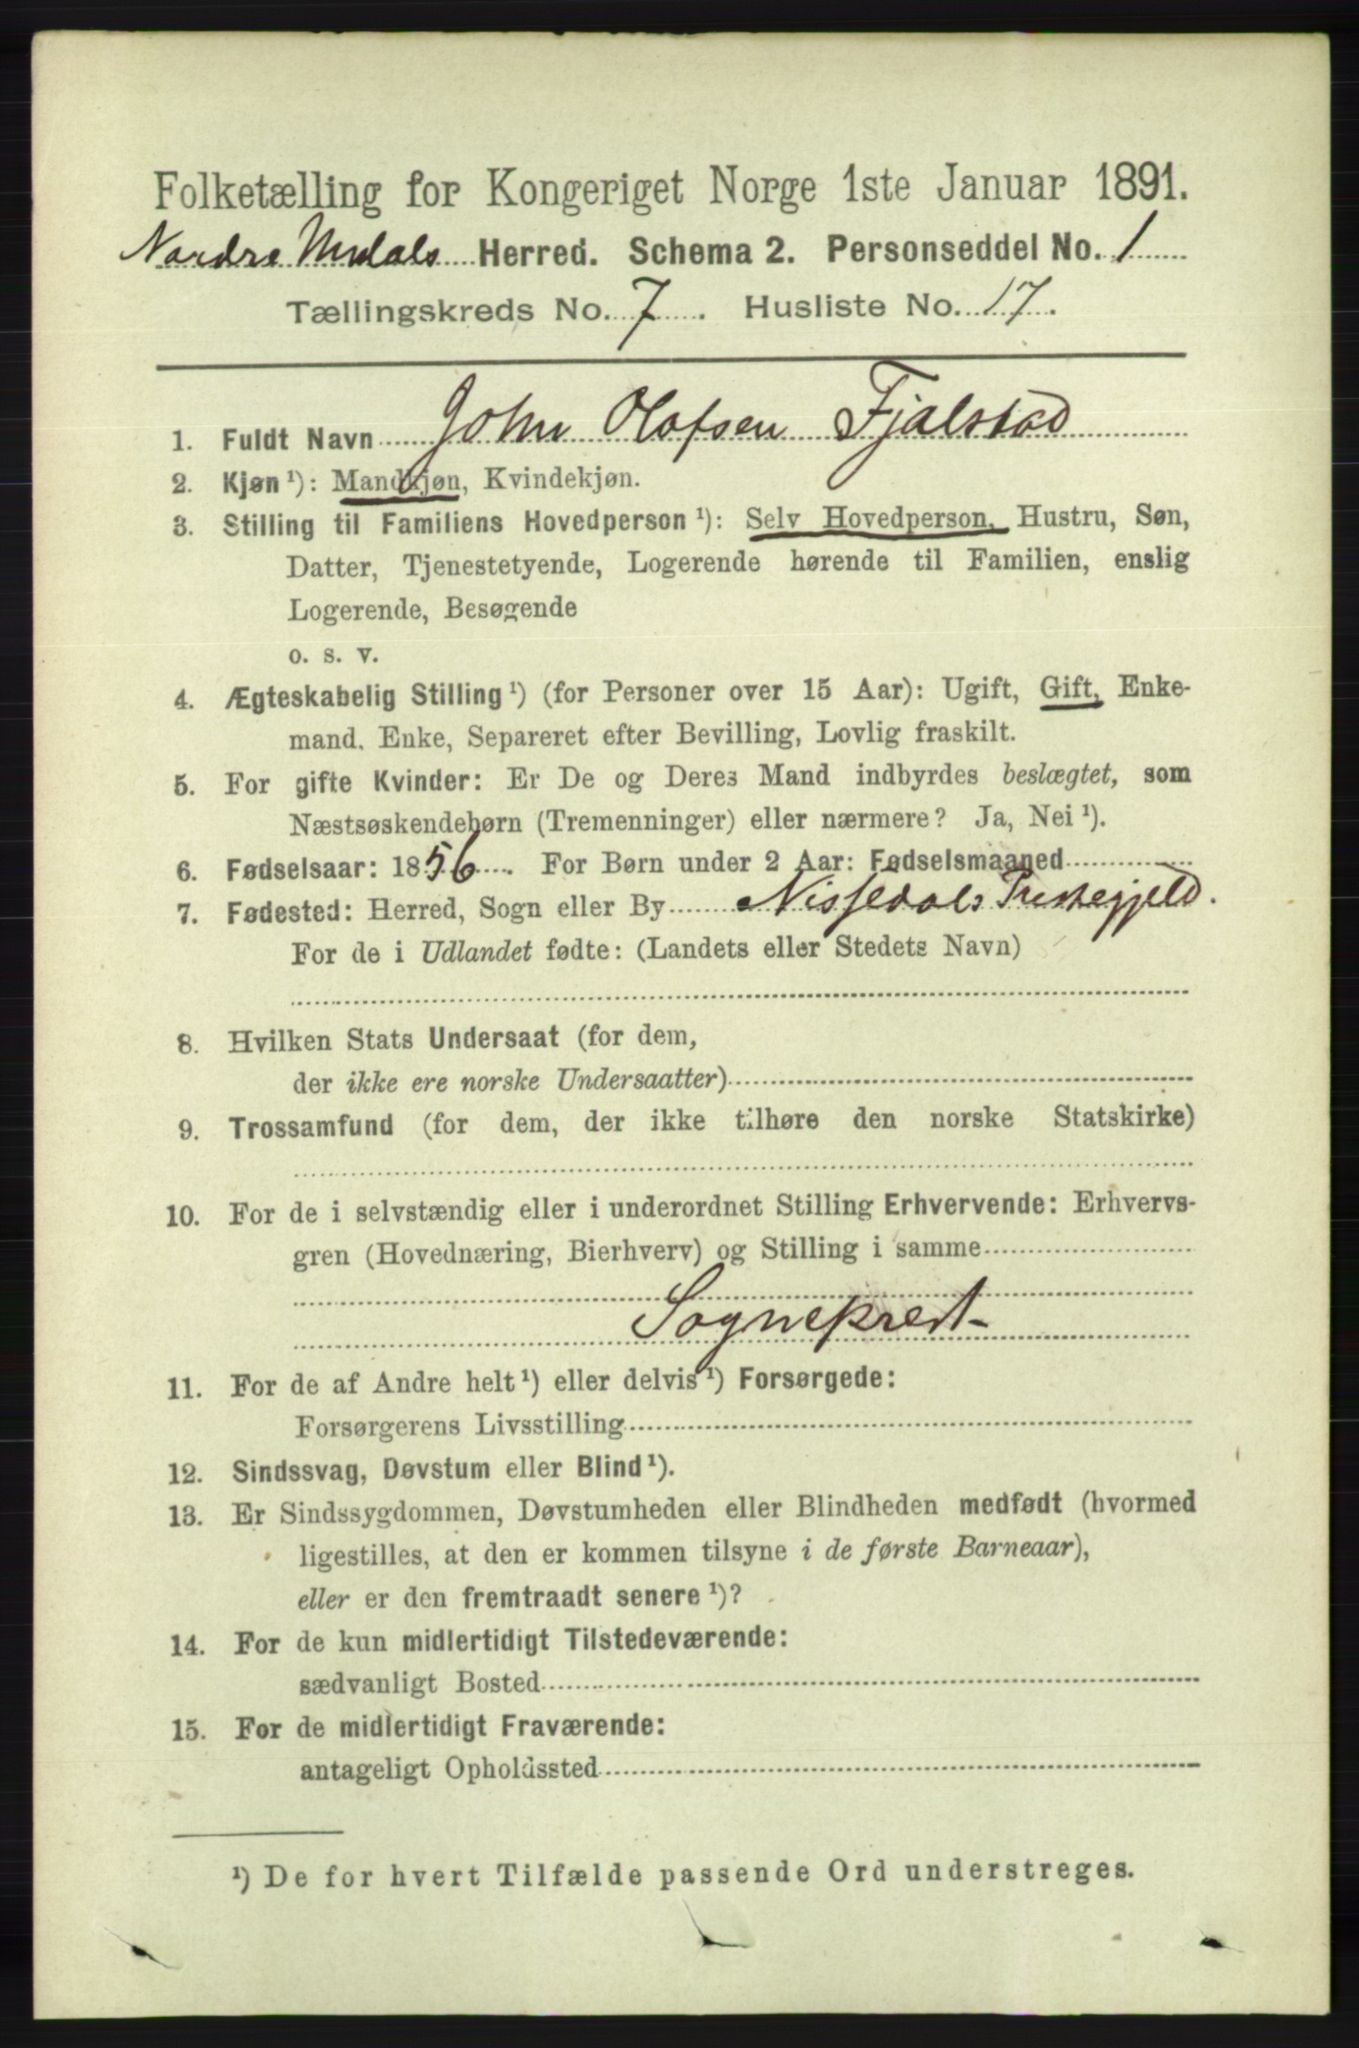 Folketælling for Kongeriget Norge 1ste Januar 1891.
Nordre Undals Herred. Schema 2. Personseddel No. 1
Tællingskreds No. 7. Husliste No. 17.
1. Fuldt Navn John Olafsen Fjalstad
2. Kjøn ¹): Mandkjøn, Kvindekjøn.
3. Stilling til Familiens Hovedperson ¹): Selv Hovedperson, Hustru, Søn,
Datter, Tjenestetyende, Logerende hørende til Familien, enslig
Logerende, Besøgende
o. s. v.
4. Ægteskabelig Stilling ¹) (for Personer over 15 Aar): Ugift, Gift, Enke-
mand, Enke, Separeret efter Bevilling, Lovlig fraskilt.
5. For gifte Kvinder: Er De og Deres Mand indbyrdes beslægtet, som
Næstsøskendebørn (Tremenninger) eller nærmere? Ja, Nei ¹).
6. Fødselsaar: 1856. For Børn under 2 Aar: Fødselsmaaned
7. Fødested: Herred, Sogn eller By Nissedals Prestegjeld.
For de i Udlandet fødte: (Landets eller Stedets Navn)
8. Hvilken Stats Undersaat (for dem,
der ikke ere norske Undersaatter)
9. Trossamfund (for dem, der ikke tilhøre den norske Statskirke)
10. For de i selvstændig eller i underordnet Stilling Erhvervende: Erhvervs-
gren (Hovednæring, Bierhverv) og Stilling i samme
Sogneprest
11. For de af Andre helt ¹) eller delvis ¹) Forsørgede:
Forsørgerens Livsstilling
12. Sindssvag, Døvstum eller Blind ¹).
13. Er Sindssygdommen, Døvstumheden eller Blindheden medfødt (hvormed
ligestilles, at den er kommen tilsyne i de første Barneaar),
eller er den fremtraadt senere ¹)?
14. For de kun midlertidigt Tilstedeværende:
sædvanligt Bosted
15. For de midlertidigt Fraværende:
antageligt Opholdssted
¹) De for hvert Tilfælde passende Ord understreges.